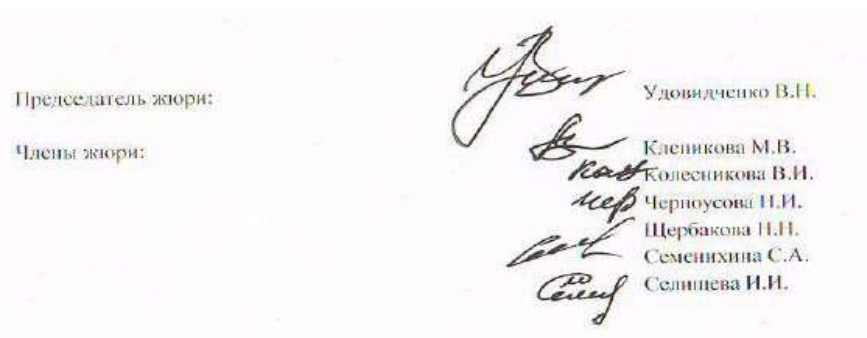 Председатель жюри: Удовидченко В.Н.
Члены жюри: Клепикова М.В.
Колесникова В.И.
Черноусова Н.И.
Щербакова Н.Н.
Семенихина С.А.
Селищева И.И.